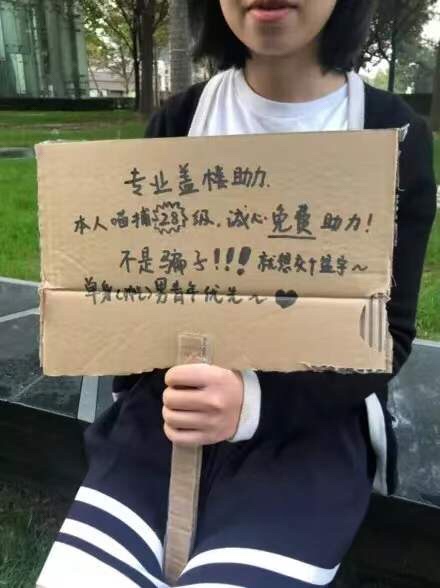 专业盖楼助力.
本人喵捕28级,诚心免费助力!
不是骗子!!!就想交个盆字~
单身()男青年优先~